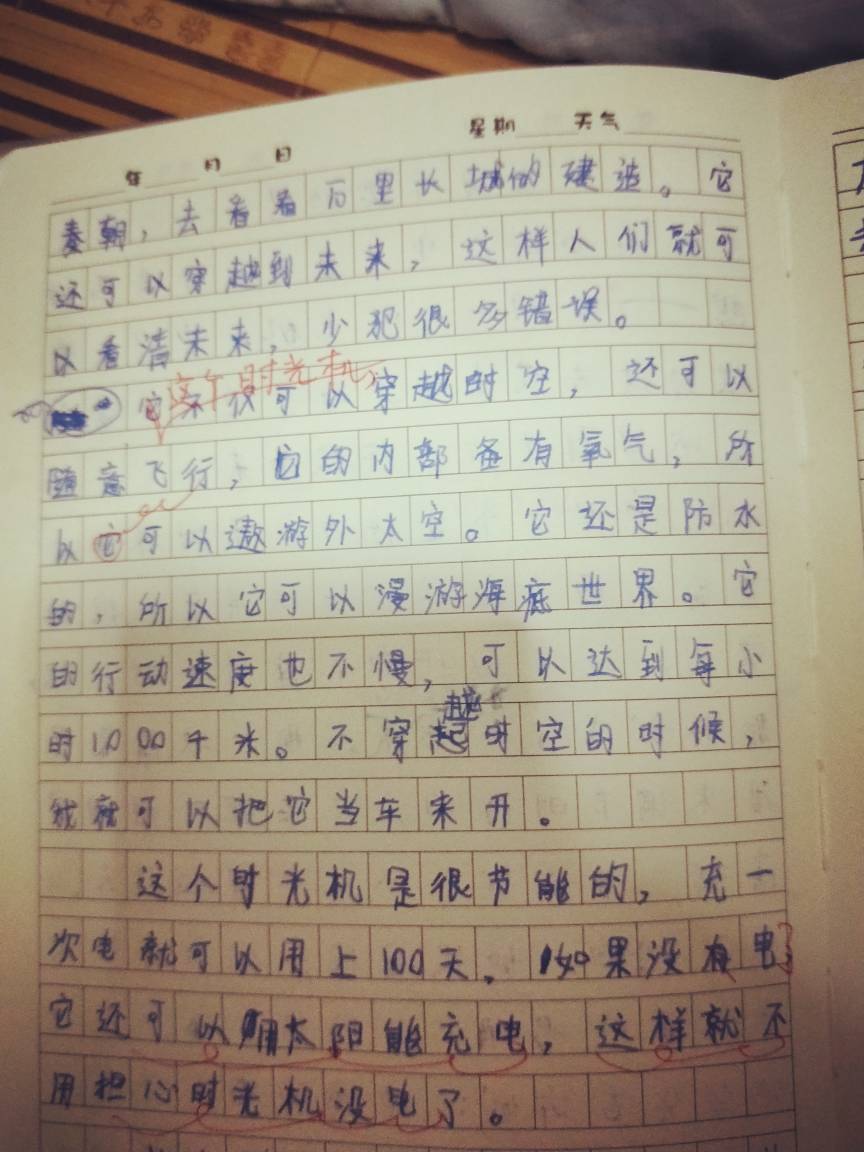 年 月 日 星期 天气
秦朝，去看看万里长城的建造。它
还可以穿越到未来，这样人们就可
以看清未来，少犯很多错误。
这个时光机
它不仅可以穿越时空，还可以
随意飞行，它的内部备有氧气，所
以它可以遨游外太空。它还是防水
的，所以它可以漫游海底世界。它
的行动速度也不慢，可以达到每小
越
时1000千米。不穿起时空的时候，
我就可以把它当车来开。
这个时光机是很节能的，充一
次电就可以用上100天。如果没有电
它还可以用太阳能充电，这样就不
用担心时光机没电了。